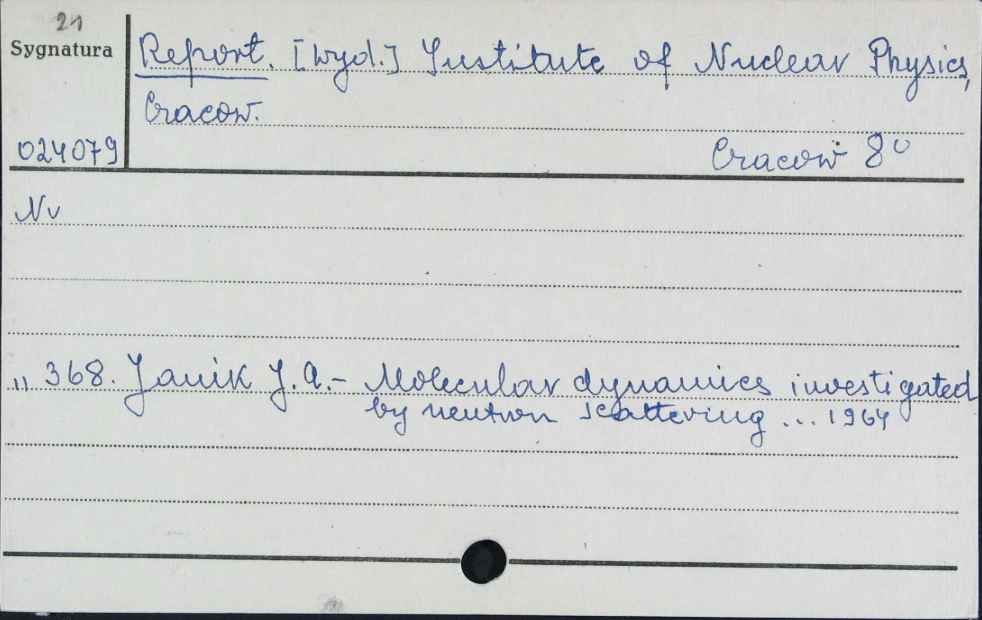 21
Sygnatura
Report. [wyd.] Institute of Nuclear Physics,
Cracow.
024079
Cracow 8°
Nr
„ 368. Janik J.A.- Molecular dynamics investigated
by neutron scattering ... 1964